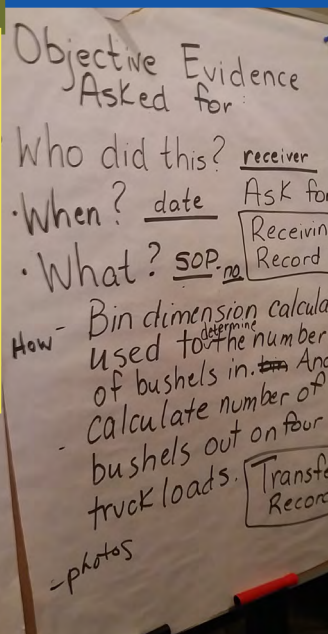 Objective Evidence
Asked for:
Who did this? receiver
· When? date Ask fo
Receivin
· What? SOP. no. Record
How - Bin dimension calcula
determine
used to the number
of bushels in. And
- calculate number of
bushels out on four
truck loads. Transfe
Record
- photos